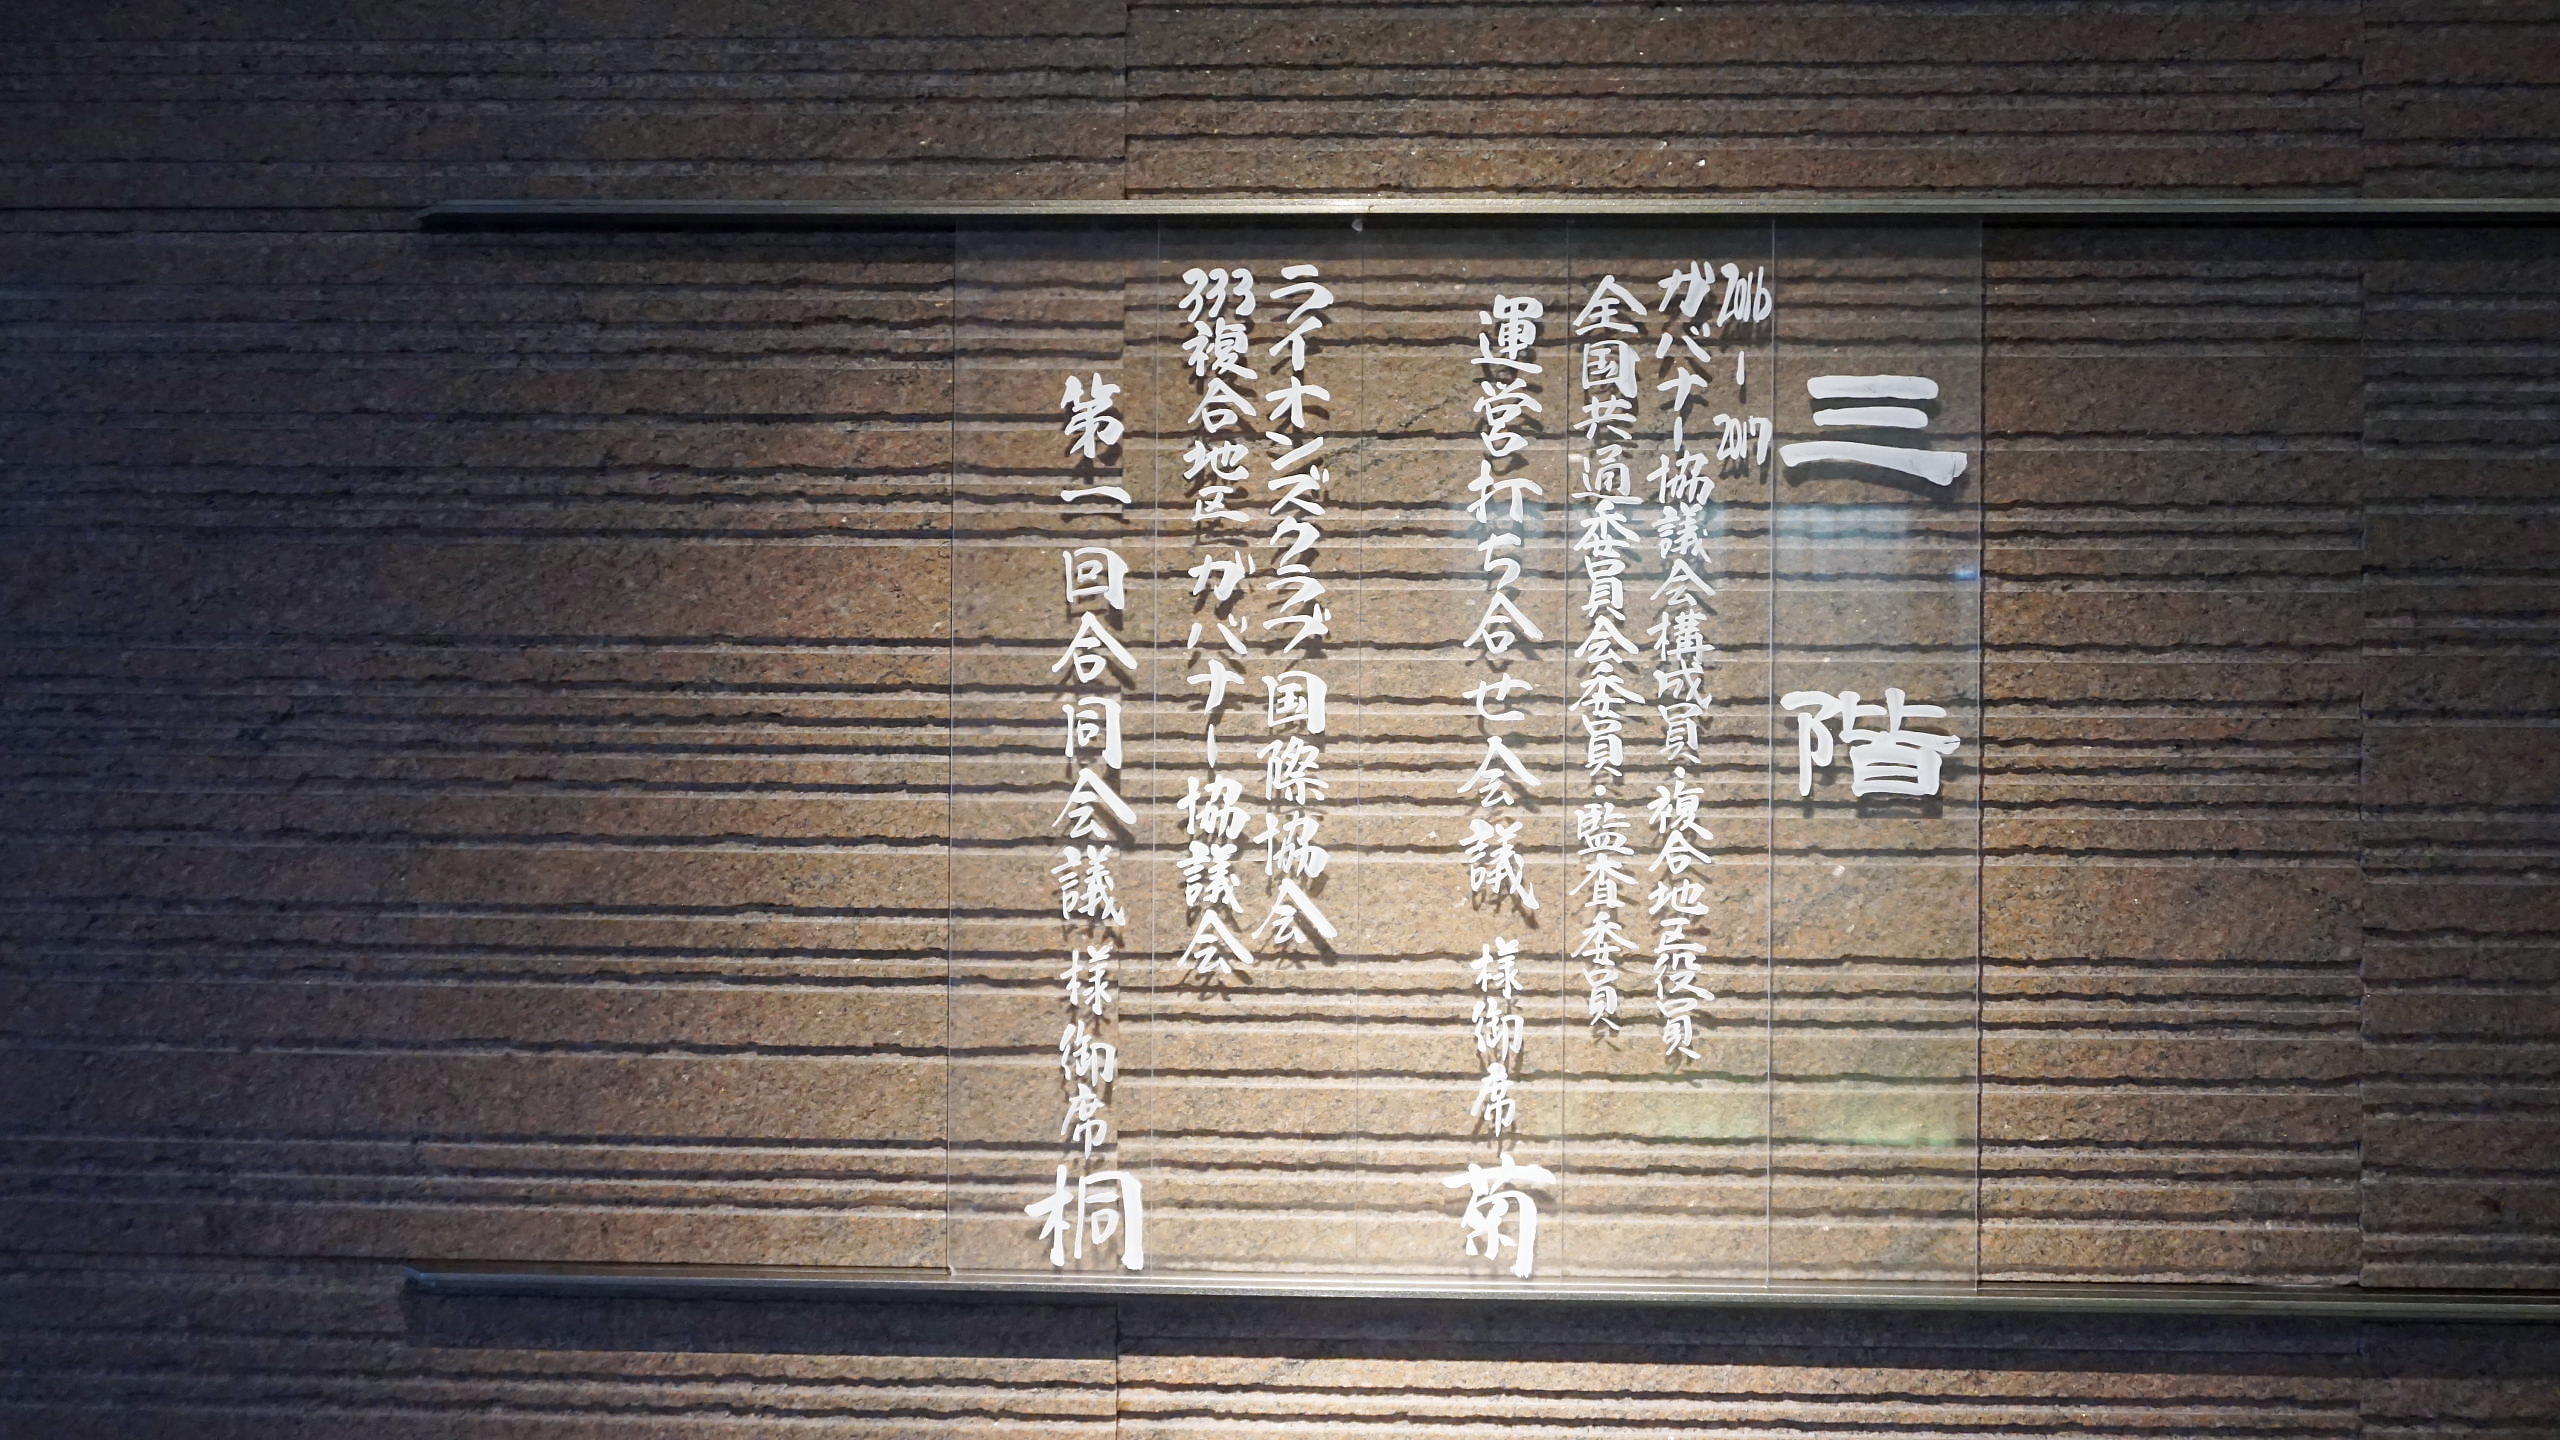 三階
2016-2017
ガバナー協議会構成員・複合地区役員
全国共通委員会委員・監査委員
運営打ち合せ会議 様御席 菊
ライオンズクラブ国際協会
333複合地区 ガバナー協議会
第一回合同会議 様御席 桐